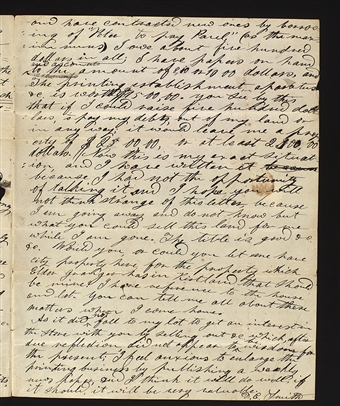 and have contracted new ones by borrow-
ing of "Peter to pay Paul" (as the man
in news) I owe about five hundred
dollars in all, I have papers on hand
to the amount of dollars, and
The printing establishment, apparatus
&c. is worth You see by this
that if I could raise five hundred dol-
lars, to pay my debts, out of my land or
in any way, it would leave me a prop-
erty of or at least
dollars. Now this is my exact situat-
ion and I have written it
because I had not the opportunity
of talking it, and I hope you will
not think strange of this letter, because
I am going away and do not know but
what you could sell this land for me
while I am gone. The title is good &c
&c. Would you or could you let me have
city property here for the property which
Ellen has in Kirtland that should
be mine; I have reference to the house
and lot. You can tell me all about these
matters when I come home.
As it did fall to my lot to get an interest in
the store with you by selling out &c which after
due reflection did not appear to
the present; I feel anxious to enlarge the
printing business by publishing a weekly
news paper, and I think it will do well; if
it should, it will be very
Smith